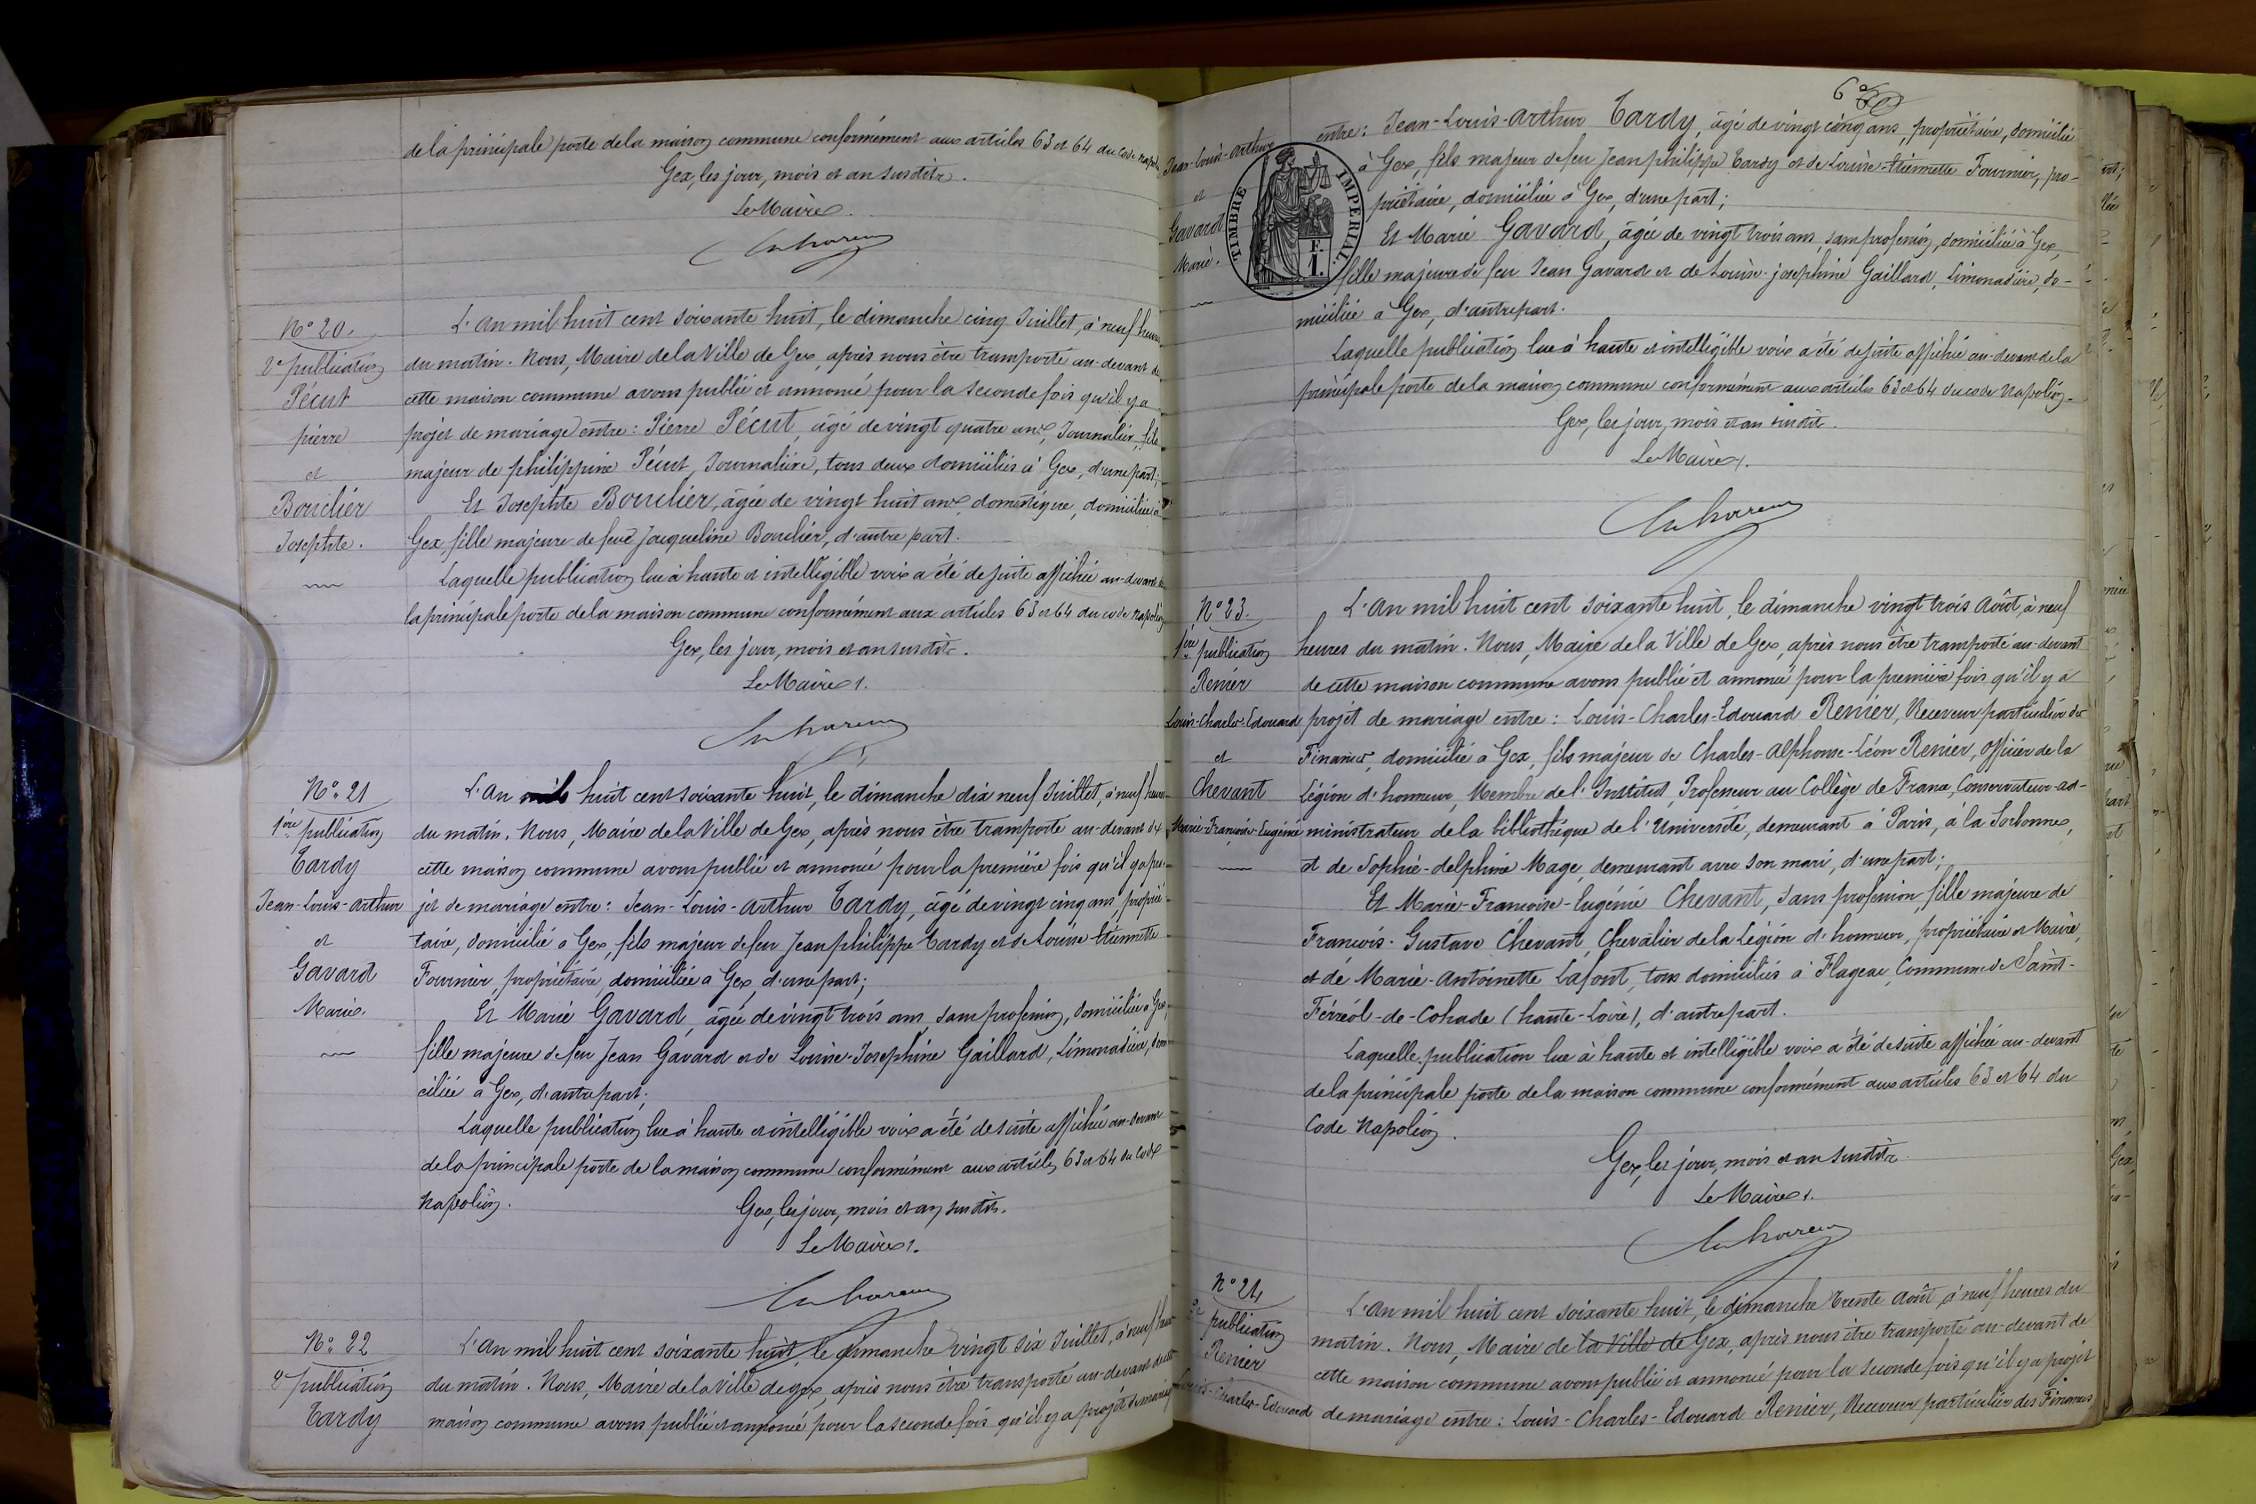 de la principale porte de la maison commune conformément aux articles 63 et 64 du code Napoléon
Gex, les jour, mois et an susdits.
Le Maire
N° 20.
2e publication
Pécut
pierre
et
Bouclier
Josephte.
L'An mil huit cent soixante huit, le dimanche cinq Juillet, à neuf heures
du matin. Nous, Maire de la Ville de Gex, après nous être transporté au-devant de
cette maison commune avons publié et annoncé pour la seconde fois qu'il y a
projet de mariage entre : Pierre Pécut, âgé de vingt quatre ans, Journalier, fils
majeur de philippine Pécut, Journalière, tous deux domiciliés à Gex, d'une part;
Et Josephte Bouclier, âgée de vingt huit ans, domestique, domiciliée à
Gex, fille majeure de feue Jacqueline Bouclier, d'autre part.
Laquelle publication lue à haute et intelligible voix a été de suite affichée au-devant de
la principale porte de la maison commune conformément aux articles 63 et 64 du code Napoléon
Gex, les jour, mois et an susdits.
Le Maire.
N° 21
1ère publication
Tardy
Jean-Louis-Arthur
et
Gavard
Marie.
L'An mil huit cent soixante huit, le dimanche dix neuf Juillet, à neuf heures
du matin. Nous, Maire de la Ville de Gex, après nous être transporté au-devant de
cette maison commune avons publié et annoncé pour la première fois qu'il y a pro-
jet de mariage entre : Jean-Louis-Arthur Tardy, âgé de vingt cinq ans, proprié-
taire, domicilié à Gex, fils majeur de feu Jean philippe Tardy et de Louise Etiennette
Fournier, propriétaire, domiciliée à Gex, d'une part;
Et Marie Gavard, âgée de vingt trois ans, sans profession, domiciliée à Gex,
fille majeure de feu Jean Gavard et de Louise-Josephine Gaillard, Limonadière, domi-
ciliée à Gex, d'autre part;
Laquelle publication lue à haute et intelligible voix a été de suite affichée au-devant
de la principale porte de la maison commune conformément aux articles 63 et 64 du Code
Napoléon.
Gex, les jour, mois et an susdits.
Le Maire.
N° 22
2e publication
Tardy
L'An mil huit cent soixante huit, le dimanche vingt six Juillet, à neuf heures
du matin. Nous, Maire de la Ville de Gex, après nous être transporté au-devant de cette
maison commune avons publié et annoncé pour la seconde fois qu'il y a projet de mariage
Jean-Louis-Arthur
et
Gavard
Marie.
TIMBRE IMPERIAL
F.
1.
entre : Jean-Louis-Arthur Tardy, âgé de vingt cinq ans, propriétaire, domicilié
à Gex, fils majeur de feu Jean philippe Tardy et de Louise-Etiennette Fournier, pro-
priétaire, domiciliée à Gex, d'une part;
Et Marie Gavard, âgée de vingt trois ans, sans profession, domiciliée à Gex,
fille majeure de feu Jean Gavard et de Louise-josephine Gaillard, Limonadière, do-
miciliée à Gex, d'autre part.
Laquelle publication lue à haute et intelligible voix a été de suite affichée au-devant de la
principale porte de la maison commune conformément aux articles 63 et 64 du code Napoléon.
Gex, les jour, mois et an susdits.
Le Maire.
N° 23.
1ère publication
Renier
Louis-Charles-Edouard
et
Chevant
Marie-Françoise-Eugénie
L'An mil huit cent soixante huit, le dimanche vingt trois Août, à neuf
heures du matin. Nous, Maire de la Ville de Gex, après nous être transporté au-devant
de cette maison commune avons publié et annoncé pour la première fois qu'il y a
projet de mariage entre : Louis-Charles-Edouard Renier, Receveur particulier des
Finances, domicilié à Gex, fils majeur de Charles-Alphonse-Léon Renier, Officier de la
Légion d'honneur, Membre de l'Institut, Professeur au Collège de France, Conservateur-ad-
ministrateur de la bibliothèque de l'Université, demeurant à Paris, à la Sorbonne,
et de Sophie-delphine Mage, demeurant avec son mari, d'une part;
Et Marie-Françoise-Eugénie Chevant, sans profession, fille majeure de
François-Gustave Chevant, Chevalier de la Légion d'honneur, propriétaire et Maire,
et de Marie-Antoinette Lafont, tous domiciliés à Flageac, Commune de Saint-
Férréol-de-Cohade (haute-Loire), d'autre part.
Laquelle publication lue à haute et intelligible voix a été de suite affichée au-devant
de la principale porte de la maison commune conformément aux articles 63 et 64 du
Code Napoléon.
Gex, les jour, mois et an susdits
Le Maire.
N° 24
2e publication
Renier
Louis-Charles-Edouard
L'An mil huit cent soixante huit, le dimanche trente Août, à neuf heures du
matin. Nous, Maire de la Ville de Gex, après nous être transporté au-devant de
cette maison commune avons publié et annoncé pour la seconde fois qu'il y a projet
de mariage entre : Louis-Charles-Edouard Renier, Receveur particulier des Finances